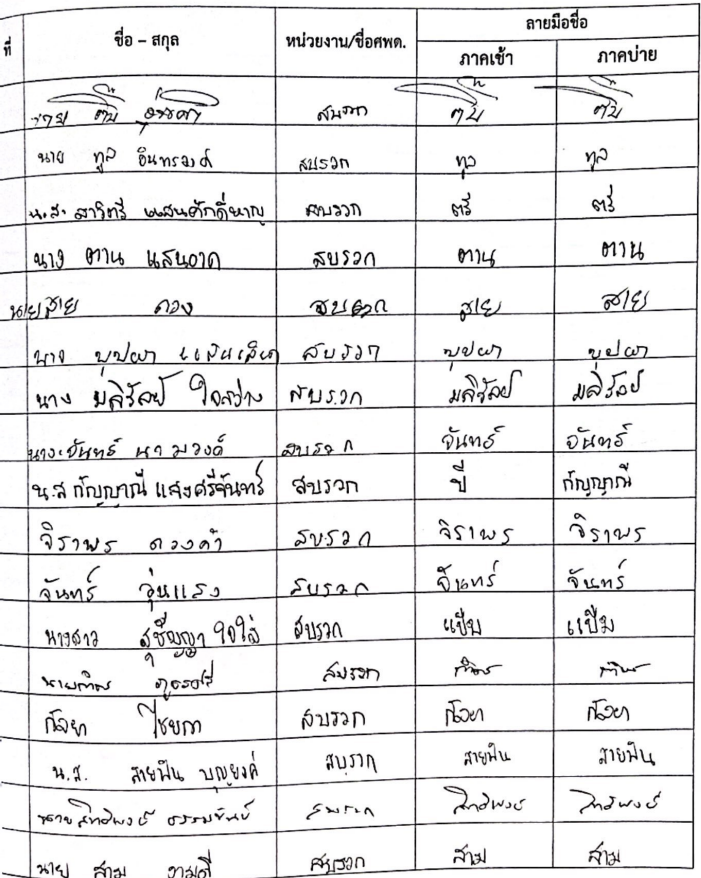 ที่ ชื่อ – สกุล หน่วยงาน/ชื่อศพด. ลายมือชื่อ
ภาคเช้า ภาคบ่าย
นาย ตึ๋บ สบรวก ตึ๋บ ตึ๋บ
นาย ทูล อินทรวงศ์ สบรวก ทูล ทูล
น.ส. สาวิตรี แสนศักดิ์หาญ สบรวก ตรี ตรี
นาง ตาน แสนอาด สบรวก ตาน ตาน
นาย สาย ดวง สบรวก สาย สาย
นาง บุปผา สบรวก บุปผา บุปผา
นาง มลิวัลย์ ใจสว่าง สบรวก มลิวัลย์ มลิวัลย์
นาง จันทร์ นามวงค์ สบรวก จันทร์ จันทร์
น.ส กัญญาณี แสงศรีจันทร์ สบรวก ปี กัญญาณี
จิราพร ดวงคำ สบรวก จิราพร จิราพร
จันทร์ อุ่นแสง สบรวก จันทร์ จันทร์
นางสาว สุชัญญา ใจใส่ สบรวก แป๊ม แป๊ม
นาย สบรวก
กัลยา ไชยกา สบรวก กัลยา กัลยา
น.ส. สายฝน บุญยงค์ สบรวก สายฝน สายฝน
นาย สิทธิพงษ์ ธรรมขันธ์ สบรวก สิทธิพงษ์ สิทธิพงษ์
นาย สาม งามดี สบรวก สาม สาม